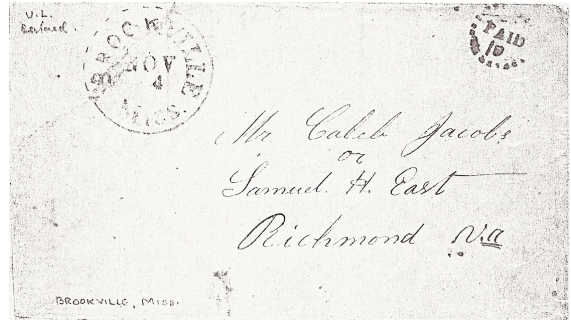 V.L.
BROOKVILLE
NOV
4
MISS.
PAID
10
Mr Caleb Jacobs
or
Samuel. H. East
Richmond Va
BROOKVILLE, MISS.